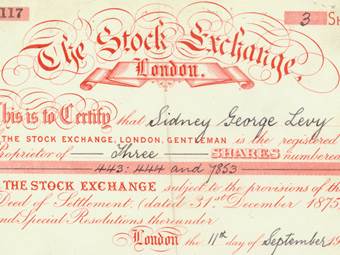 117
3 Sh
The Stock Exchange,
London.
This is to Certify that Sidney George Levy
THE STOCK EXCHANGE, LONDON, GENTLEMAN is the registered
Proprietor of Three SHARES numbered
443: 444 and 7853
THE STOCK EXCHANGE subject to the provisions of the
Deed of Settlement, (dated 31st December 1875
and Special Resolutions thereunder
London the 11th day of September 19